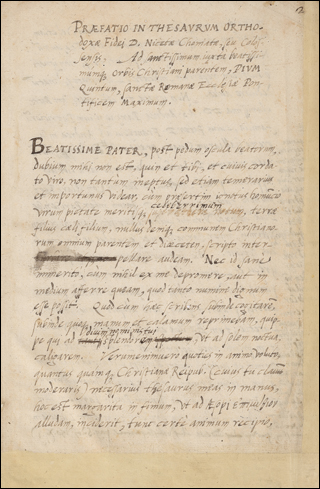 2
PRÆFATIO IN THESAVRVM ORTHO-
doxæ Fidei D. Nicetæ Choniatæ, seu Colos-
sensis: Ad sanctissimum iuxta beatissi-
mumq; Orbis Christiani parentem, PIVM
Quintum, sanctæ Romanæ Ecclesiæ Pon-
tificem Maximum.
BEATISSIME PATER, post pedum oscula beatorum,
Dubium mihi non est, quin et tibi, et cuiuis corda-
to viro, non tantum ineptus, sed etiam temerarius
et importunus videar, cum præsertim ignotus homuncio
celeberrimum
virum pietate meritisq; terræ
filius cæli filium, nullus demq; communem Christiano-
rum omnium parentem et scripto inter-
pellare audeam. Nec id sane
immerito, cum nihil ex me depromere, aut in
medium afferre queam, quod tanto numine dignum
esse possit. Quod cum hæc scribens subinde cogitarem,
subinde quoq; manum et calamum reprimebam, quip-
pe qui ad splendorem vt ad solem noctua,
caligarem. Verumenimuero quoties in animo voluo,
quantus quamq; Christianæ Reipub. (cuius tu clauum
moderaris) necessarius thesaurus meas in manus,
hoc est margarita in fimum, vt ad Æsopi
alludam, inciderit, tunc certe animum recipio,